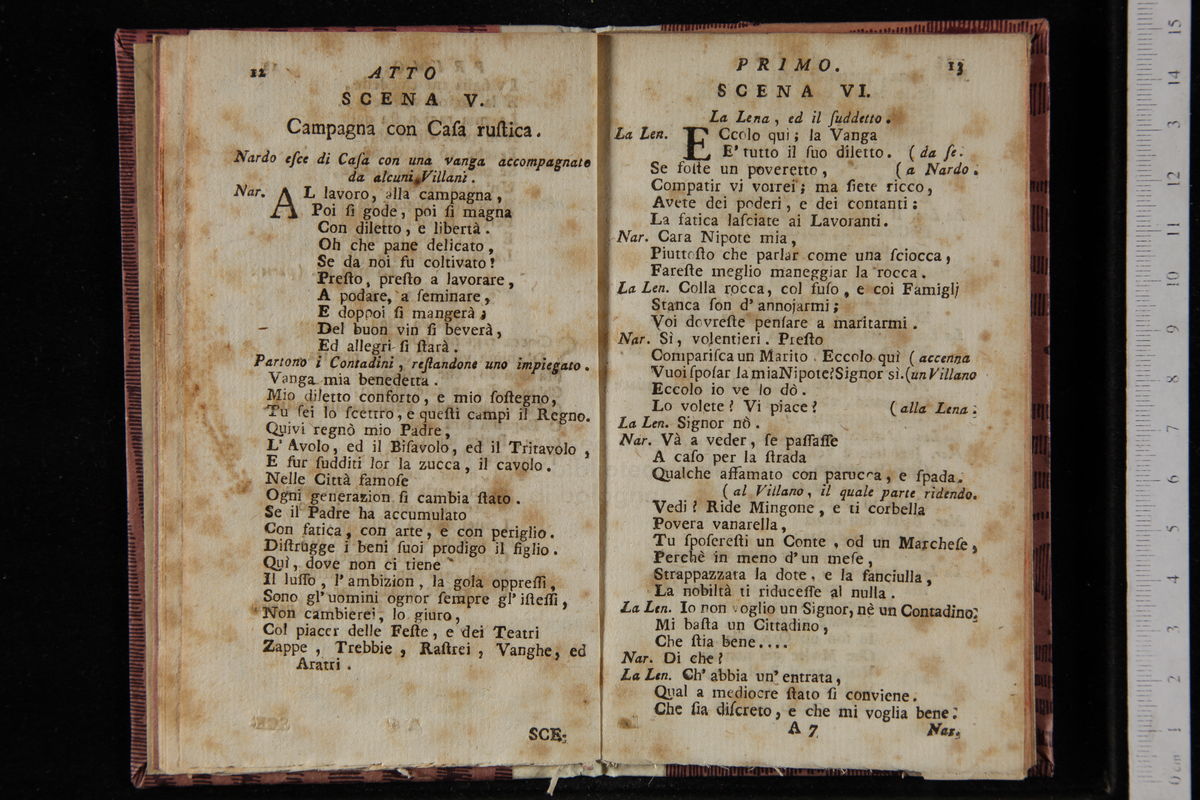 12
ATTO
SCENA V.
Campagna con Caſa ruſtica.
Nardo eſce di Caſa con una vanga accompagnato
da alcuni Villani.
Nar. AL lavoro, alla campagna,
Poi ſi gode, poi ſi magna
Con diletto, e libertà.
Oh che pane delicato,
Se da noi fu coltivato!
Preſto, preſto a lavorare,
A podare, a ſeminare,
E doppoi ſi mangerà;
Del buon vin ſi beverà,
Ed allegri ſi ſtarà.
Partono i Contadini, reſtandone uno impiegato.
Vanga mia benedetta.
Mio diletto conforto, e mio ſoſtegno,
Tu ſei lo ſcettro, e queſti campi il Regno.
Quivi regnò mio Padre,
L'Avolo, ed il Biſavolo, ed il Tritavolo,
E fur ſudditi lor la zucca, il cavolo.
Nelle Città famoſe
Ogni generazion ſi cambia ſtato.
Se il Padre ha accumulato
Con fatica, con arte, e con periglio.
Diſtrugge i beni ſuoi prodigo il figlio.
Quì, dove non ci tiene
Il luſſo, l'ambizion, la gola oppreſſi,
Sono gl'uomini ognor ſempre gl'iſteſſi,
Non cambierei, lo giuro,
Col piacer delle Feſte, e dei Teatri
Zappe, Trebbie, Raſtrei, Vanghe, ed
Aratri.
SCE-
PRIMO.
13
SCENA VI.
La Lena, ed il ſuddetto.
La Len. ECcolo qui; la Vanga
E' tutto il ſuo diletto. (da ſe.
Se foſte un poveretto, (a Nardo.
Compatir vi vorrei; ma ſiete ricco,
Avete dei poderi, e dei contanti:
La fatica laſciate ai Lavoranti.
Nar. Cara Nipote mia,
Piuttoſto che parlar come una ſciocca,
Fareſte meglio maneggiar la rocca.
La Len. Colla rocca, col fuſo, e coi Famiglj
Stanca ſon d'annojarmi;
Voi dovreſte penſare a maritarmi.
Nar. Sì, volentieri. Preſto
Compariſca un Marito. Eccolo quì (accenna
Vuoi ſpoſar la mia Nipote? Signor sì. (un Villano
Eccolo io ve lo dò.
Lo volete? Vi piace? (alla Lena.
La Len. Signor nò.
Nar. Và a veder, ſe paſſaſſe
A caſo per la ſtrada
Qualche affamato con parucca, e ſpada.
(al Villano, il quale parte ridendo.
Vedi? Ride Mingone, e ti corbella
Povera vanarella,
Tu ſpoſereſti un Conte, od un Marcheſe,
Perchè in meno d'un meſe,
Strappazzata la dote, e la fanciulla,
La nobiltà ti riduceſſe al nulla.
La Len. Io non voglio un Signor, nè un Contadino;
Mi baſta un Cittadino,
Che ſtia bene....
Nar. Di che?
La Len. Ch'abbia un'entrata,
Qual a mediocre ſtato ſi conviene.
Che ſia diſcreto, e che mi voglia bene.
A 7
Nar.
15
14
13
12
11
10
9
8
7
6
5
4
3
2
1
0 cm